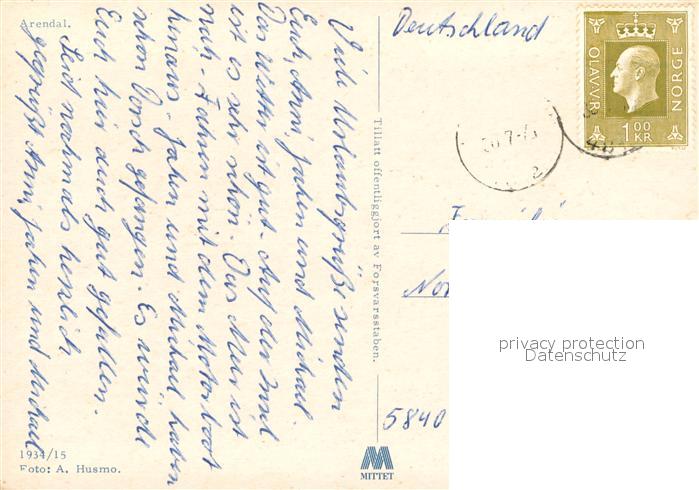 Arendal.
Viele Urlaubsgrüße senden
Euch, Anni, Jahen und Michael.
Das Wetter ist gut - Auf der Insel
ist es sehr schön. Das Meer ist
nah - Fahren mit dem Motorboot
hinaus - Jahen und Michael haben
schon Dorsch gefangen. Es würde
Euch hier auch gut gefallen.
Seid nochmals herzlich
gegrüßt Anni, Jahen und Michael
1934/15
Foto: A. Husmo.
Tillatt offentliggjort av Forsvarsstaben.
MITTET
Deutschland
OLAV VR
NORGE
1 00
KR
2
5840
privacy protection
Datenschutz